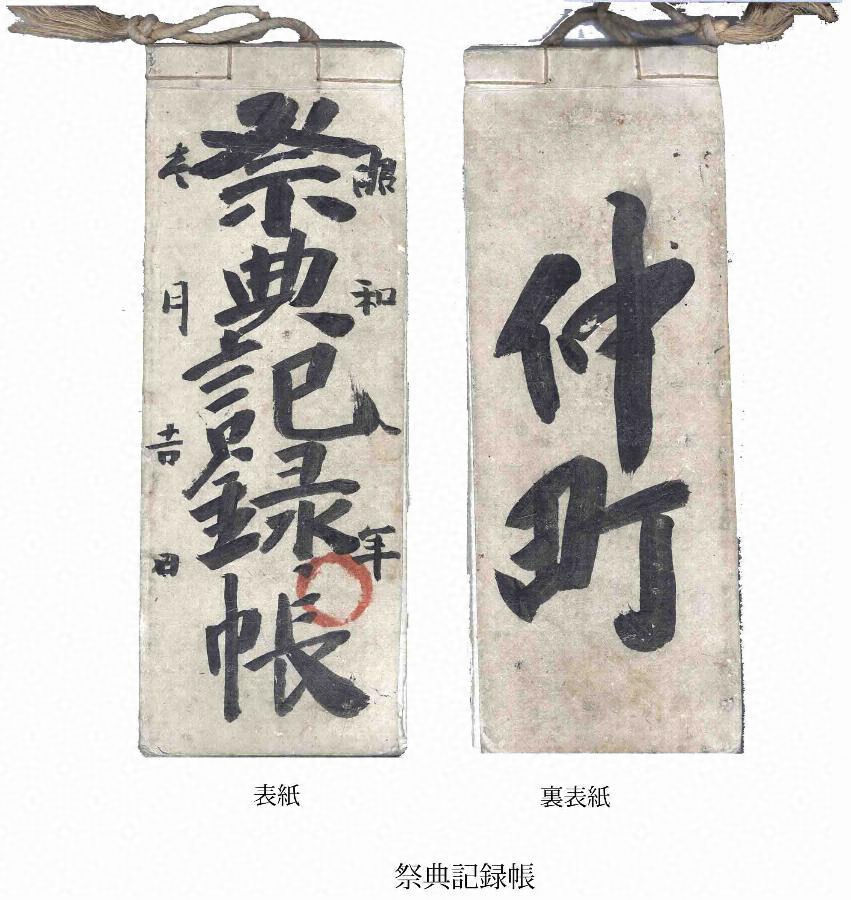 昭和八年
祭典記録帳
壱月吉日
仲町
表紙
裏表紙
祭典記録帳